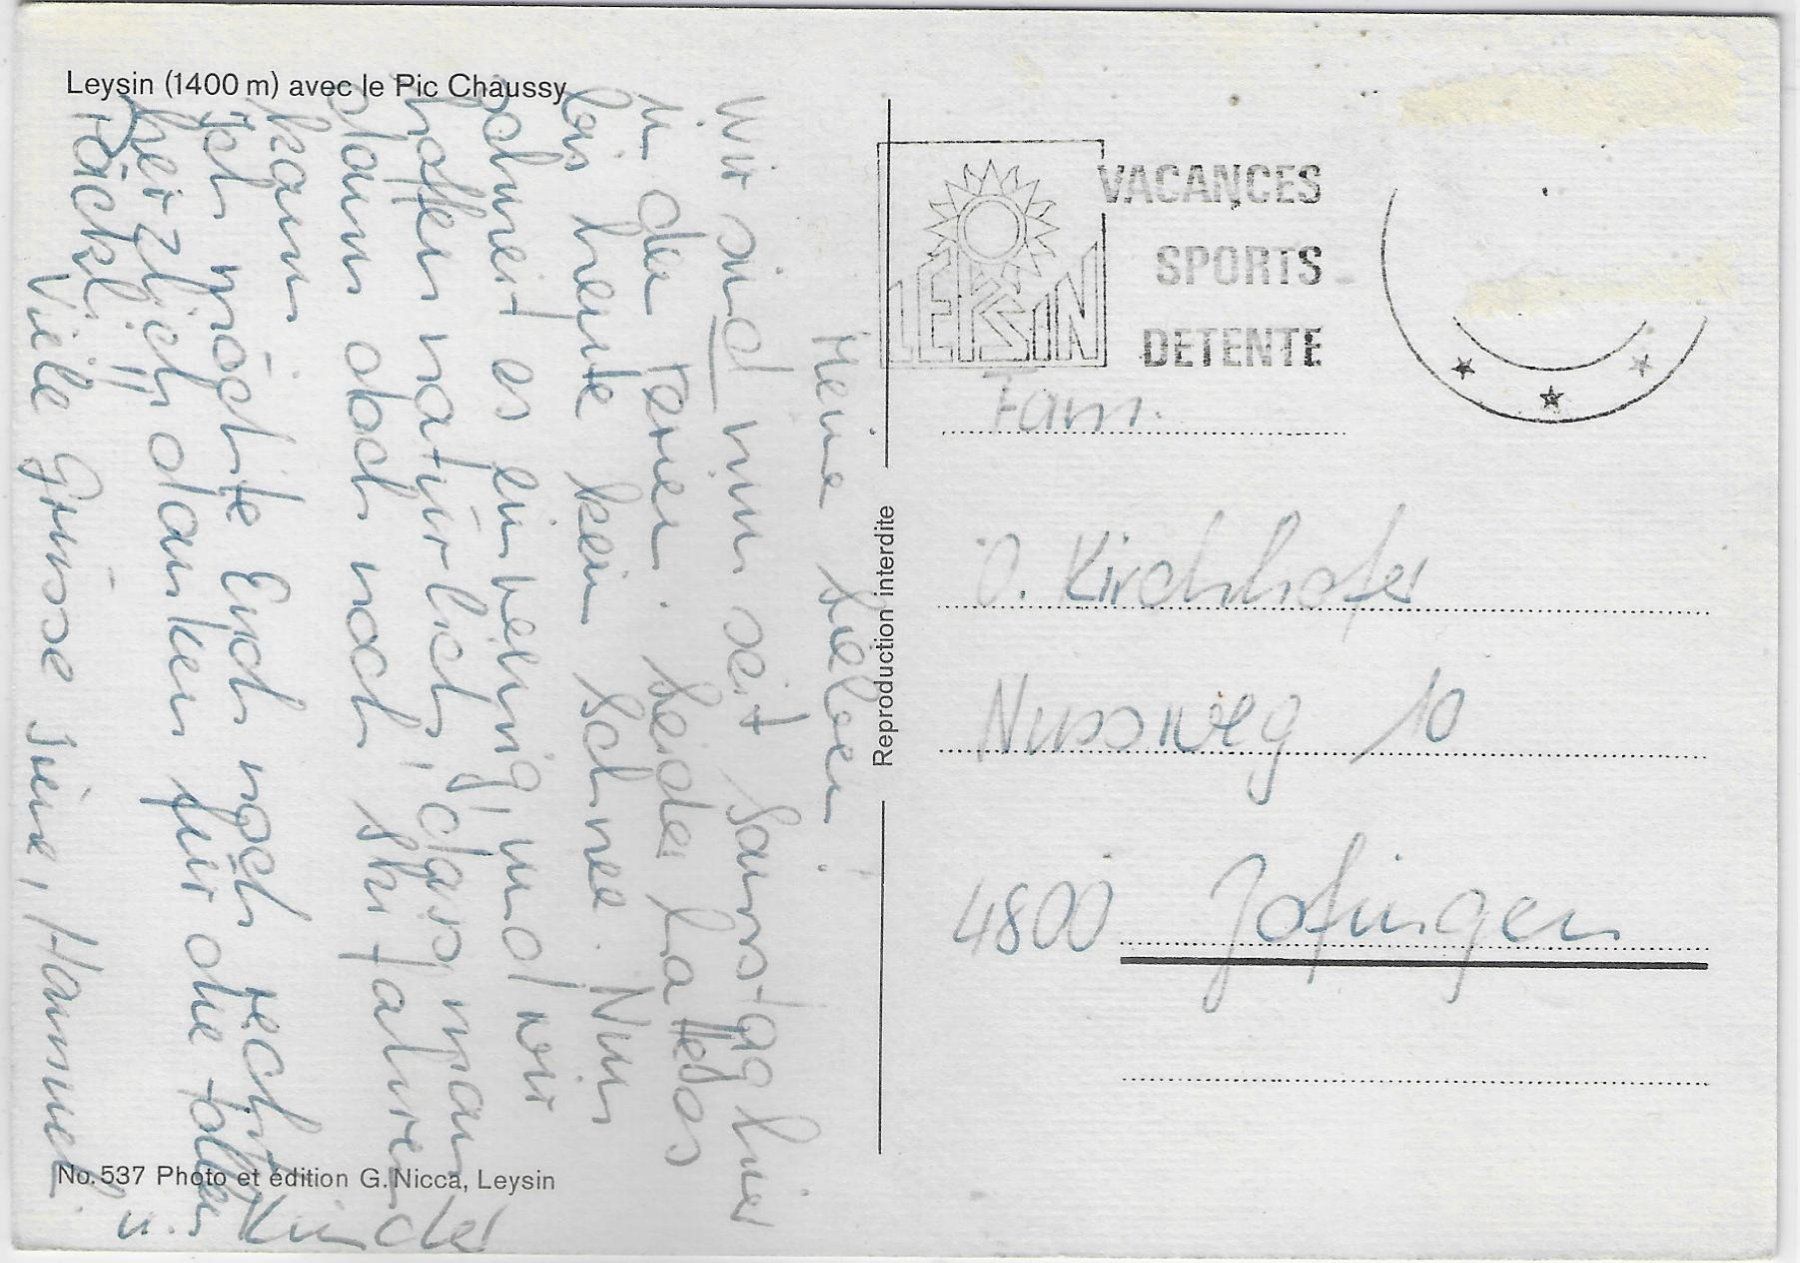 Leysin (1400 m) avec le Pic Chaussy
Meine Lieben!
Wir sind nun seit Samstag hier
in den Ferien. Leider hatte es
bis heute kein Schnee. Nun
schneit es ein wenig, und wir
hoffen natürlich, dass man
dann doch noch Ski fahren
kann.
Ich möchte Euch noch recht
herzlich danken für die tollen
Päckli!!
Viele Grüsse Irene, Hansueli
u. Kinder
No. 537 Photo et édition G. Nicca, Leysin
Reproduction interdite
LEYSIN
VACANCES
SPORTS
DETENTE
Fam.
O. Kirchhofer
Nussweg 10
4800 Zofingen